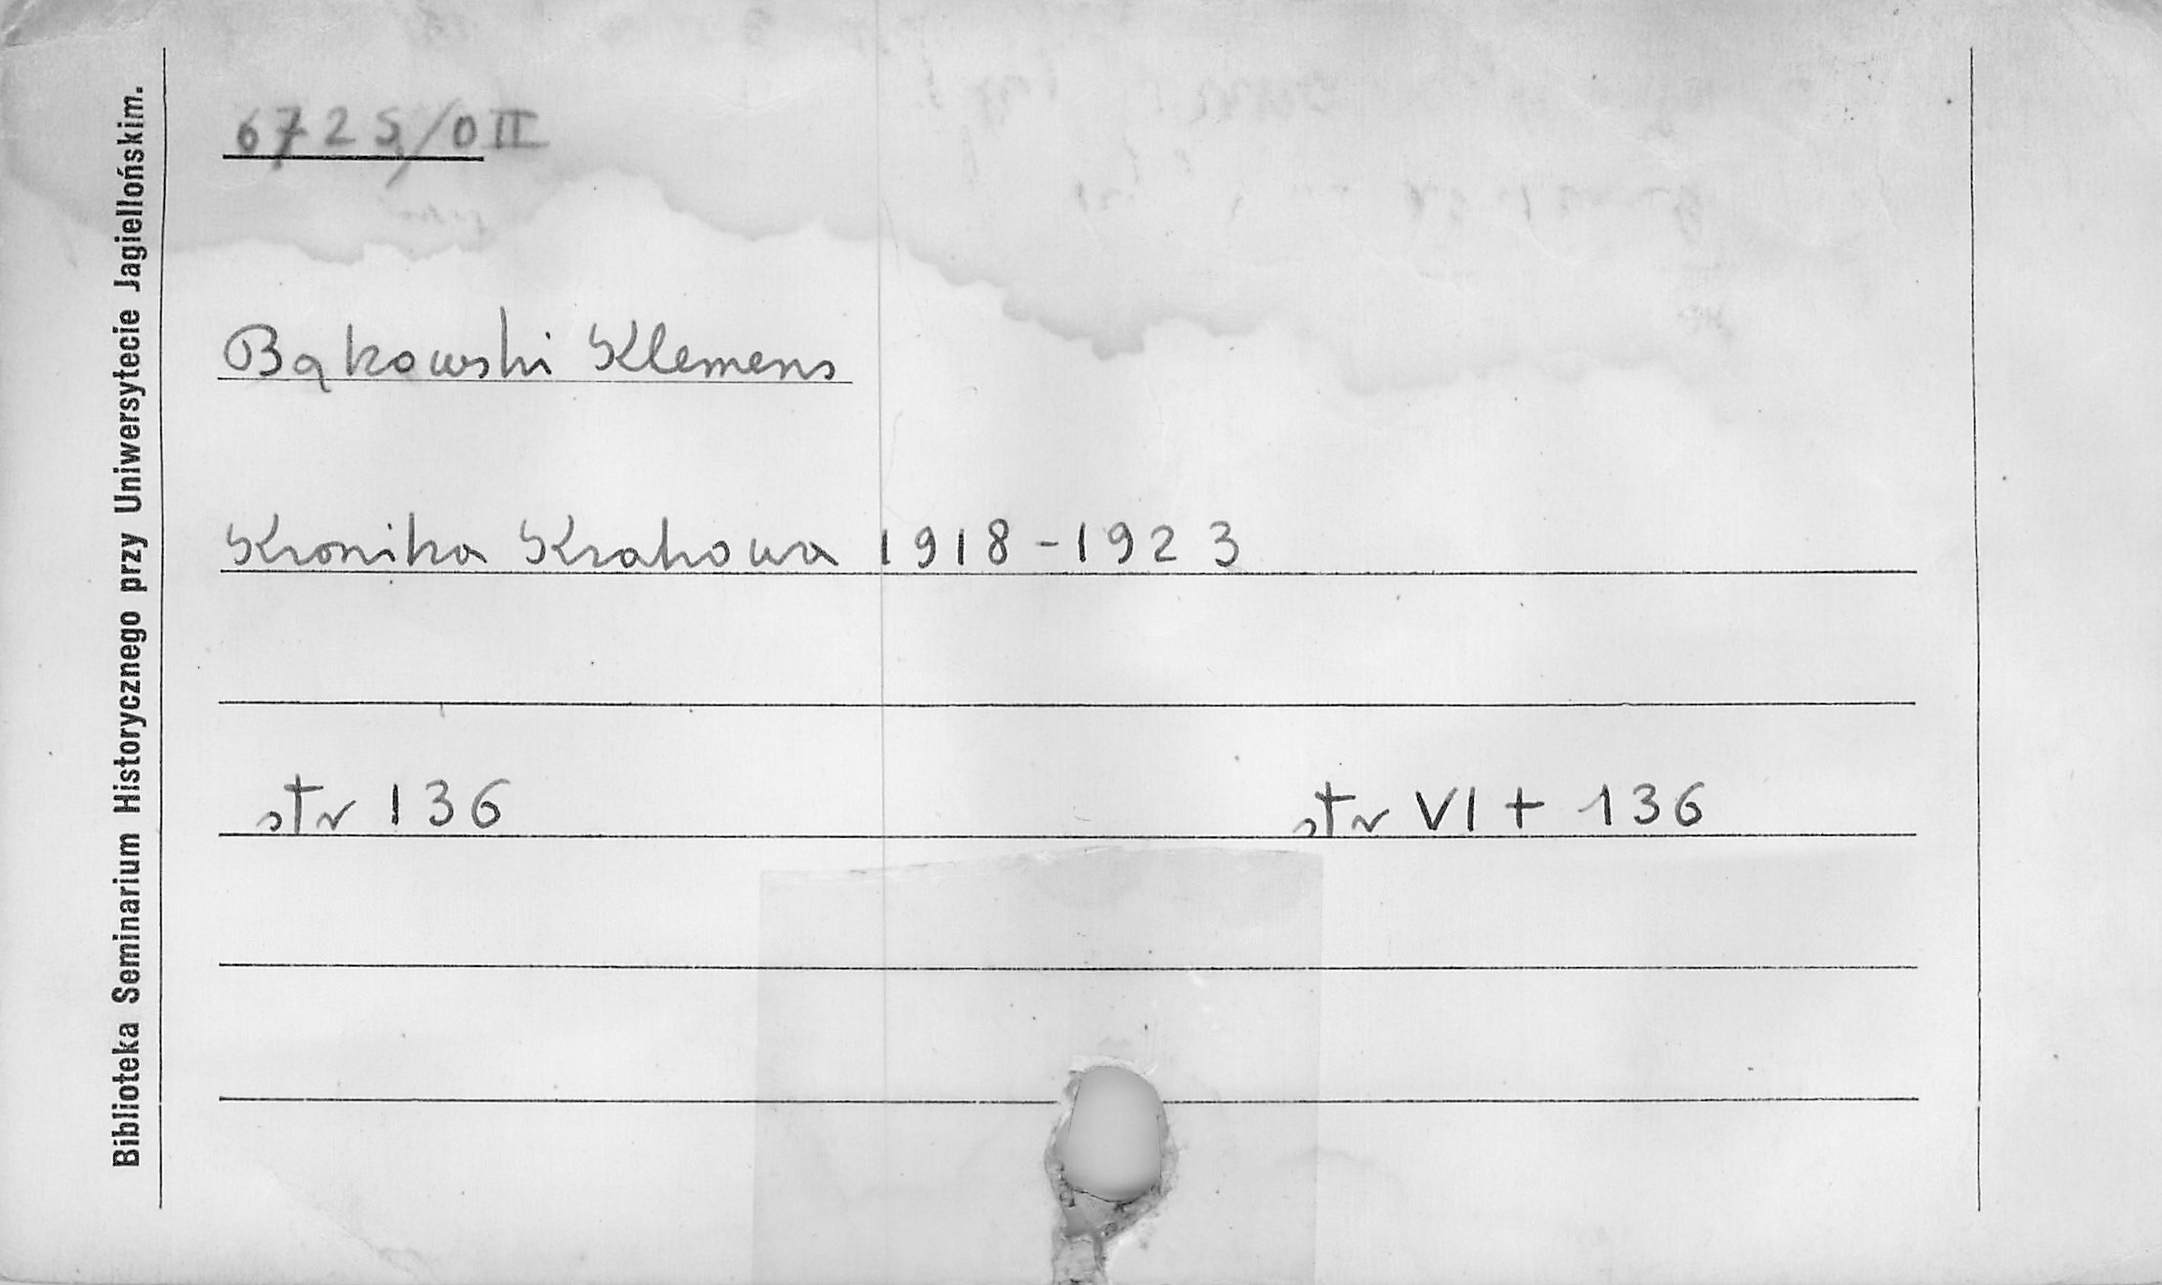 6725/O II
Bąkowski Klemens
Kronika Krakowa 1918-1923
str 136 str VI + 136
Biblioteka Seminarium Historycznego przy Uniwersytecie Jagiellońskim.